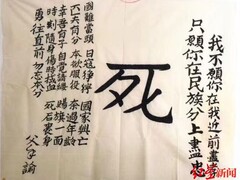 我不願你在我近前盡孝
只願你在民族分上盡忠
死
國難當頭 日寇猙獰 國家興亡
匹夫有分 本欲服役 奈過年齡
幸吾有子 自覺請纓 賜旗一面
時刻隨身 傷時拭血 死後裹身
勇往直前 勿忘本分
父手諭
新闻